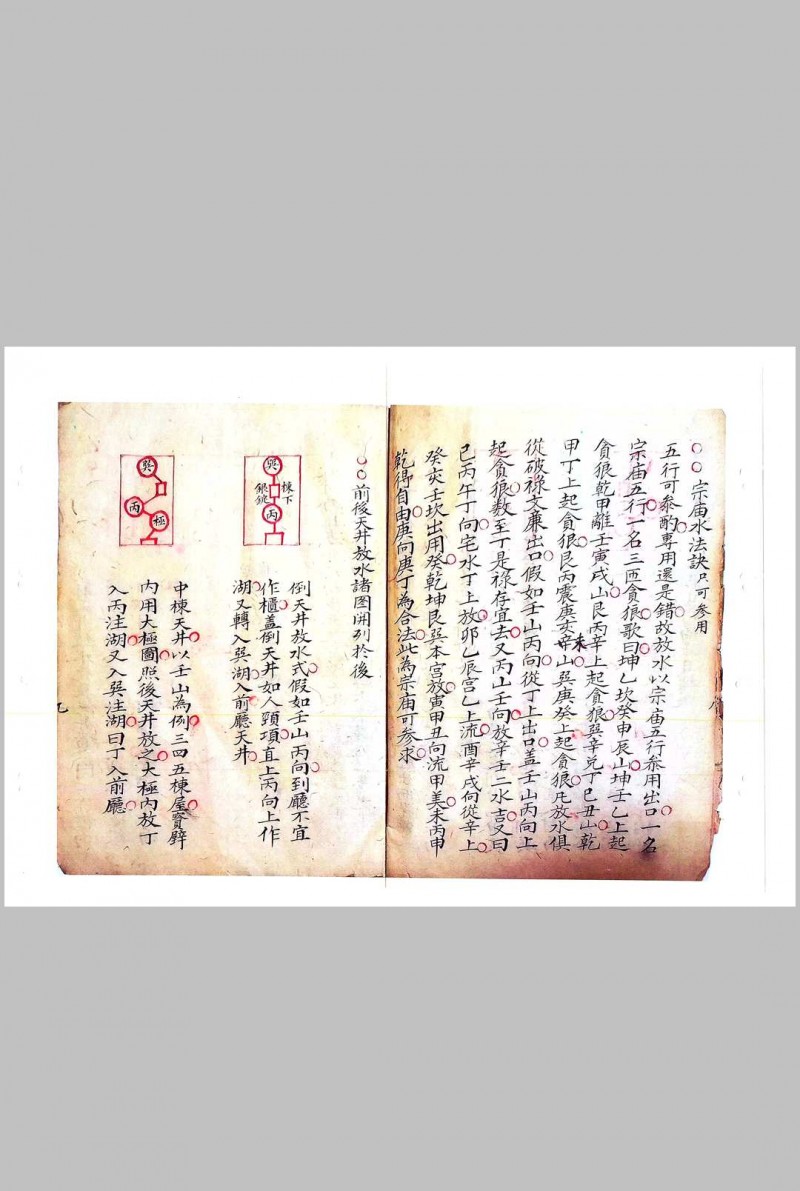 宗庙水法訣只可参用
五行可叅酌専用還是錯故放水以宗庙五行叅用出口一名
宗庙五行一名三匝貪狼歌曰坤乙坎癸申辰山坤壬乙上起
貪狼乾甲離壬寅戌山艮丙辛上起貪狼巽辛兑丁巳丑山乾
甲丁上起貪狼艮丙震庚亥未山巽庚癸上起貪狼凡放水俱
從破祿文廉出口假如壬山丙向從丁上出口盖壬山丙向上
起貪狼数至丁是祿存宜去又丙山壬向放辛壬二水吉又曰
巳丙午丁向宅水丁上放卯乙辰宫乙上流酉辛戌向從辛上
癸亥壬坎出用癸乾坤艮巽本宫放寅甲丑向流甲美未丙申
乾得自由庚向庚丁為合法此為宗庙可参求
前後天井放水諸图開列於後
巽
棟下
銀銚
丙
倒天井放水式假如壬山丙向到廳不宜
作櫃盖倒天井如人頸項直上丙向上作
湖又轉入巽湖入前廳天井
巽
丙
極
中棟天井以壬山為例三四五棟屋寳壁
内用大極圖照後天井放之大極内放丁
入丙注湖又入巽注湖曰丁入前廳